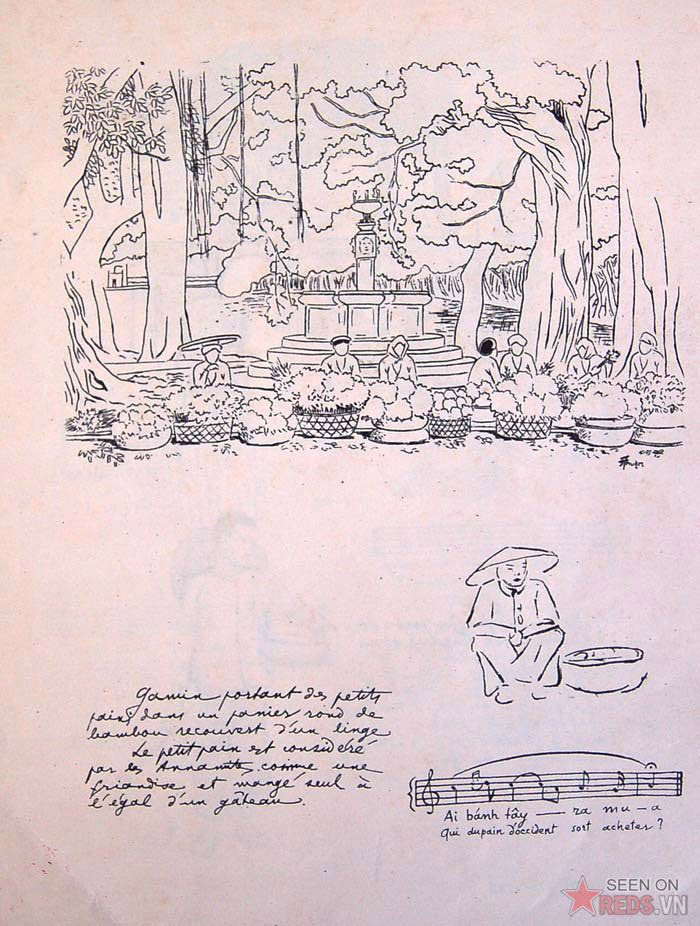 Gamin portant des petits
pains dans un panier rond de
bambou recouvert d'un linge
Le petit pain est considéré
par les Annamites comme une
friandise et mangé seul à
l'égal d'un gâteau.
Ai bánh tây — ra mu — a
Qui du pain d'occident sort acheter ?
SEEN ON
REDS.VN